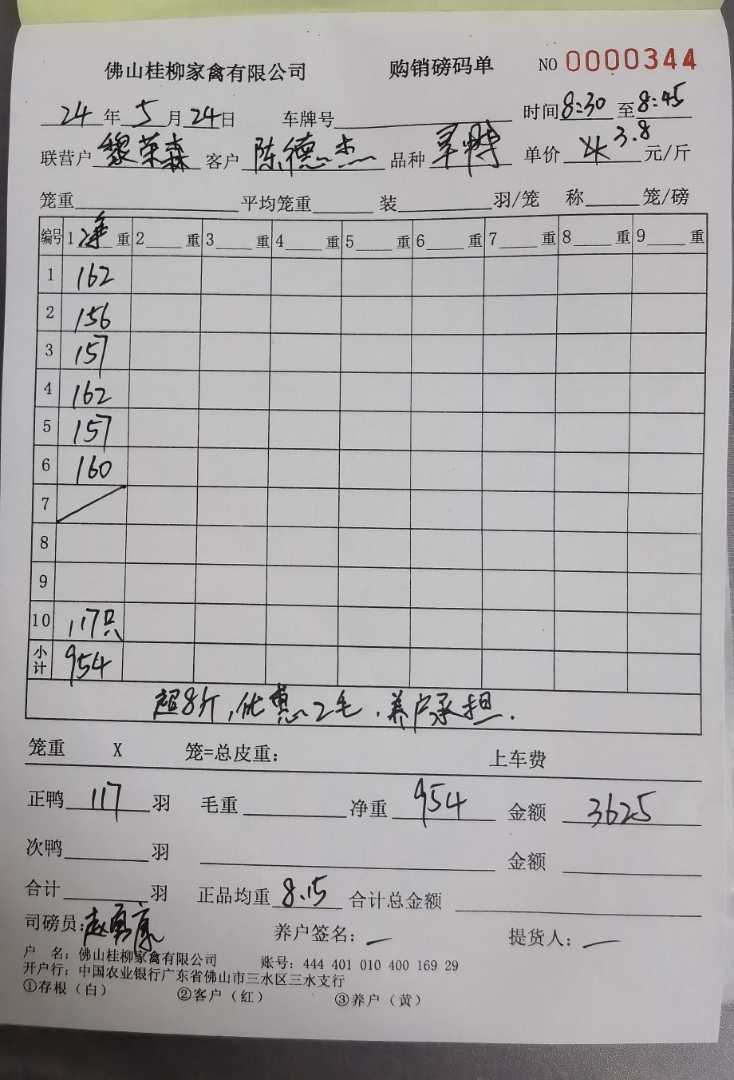 佛山桂柳家禽有限公司 购销磅码单 NO 0000344
24年5月24日 车牌号 时间8:30至8:45
联营户黎荣森 客户陈德杰 品种 单价3.8元/斤
笼重 平均笼重 装 羽/笼 称 笼/磅
编号 1净重 2 重 3 重 4 重 5 重 6 重 7 重 8 重 9 重
1 162
2 156
3 157
4 162
5 157
6 160
7
8
9
10 117只
小计 954
超8斤,优惠2毛.养户承担.
笼重 X 笼=总皮重: 上车费
正鸭117羽 毛重 净重954 金额3625
次鸭 羽 金额
合计 羽 正品均重8.15 合计总金额
司磅员:赵勇康 养户签名: 提货人:
户 名:佛山桂柳家禽有限公司 账号:444 401 010 400 169 29
开户行:中国农业银行广东省佛山市三水区三水支行
①存根(白) ②客户(红) ③养户(黄)